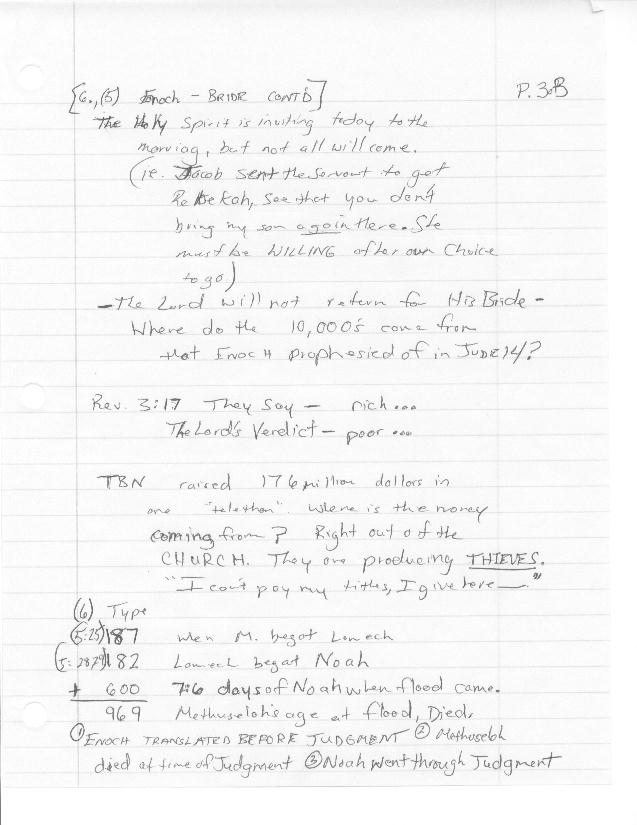 [6.,(5) Enoch - BRIDE CONT'D] P. 3.B
The Holy Spirit is inviting today to the
marriag, but not all will come.
(ie. Jacob sent the servant to get
Rebekah, see that you don't
bring my son again there. She
must be WILLING after own Choice
to go.)
- The Lord will not return for His Bride -
Where do the 10,000's come from
that ENOCH prophesied of in JUDE 14?
Rev. 3:17 They Say - rich...
The Lord's Verdict - poor ...
TBN raised 176 million dollars in
one "telethon". Where is the money
coming from? Right out of the
CHURCH. They are producing THIEVES.
"I can't pay my tithes, I give here —."
(6) Type
(5:25) 187 when M. begot Lamech
(5:28,29) 182 Lamech begat Noah
+ 600 7:6 days of Noah when flood came.
969 Methuselah's age at flood, Died.
① ENOCH TRANSLATED BEFORE JUDGMENT ② Methuselah
died at time of Judgment ③ Noah went through Judgment